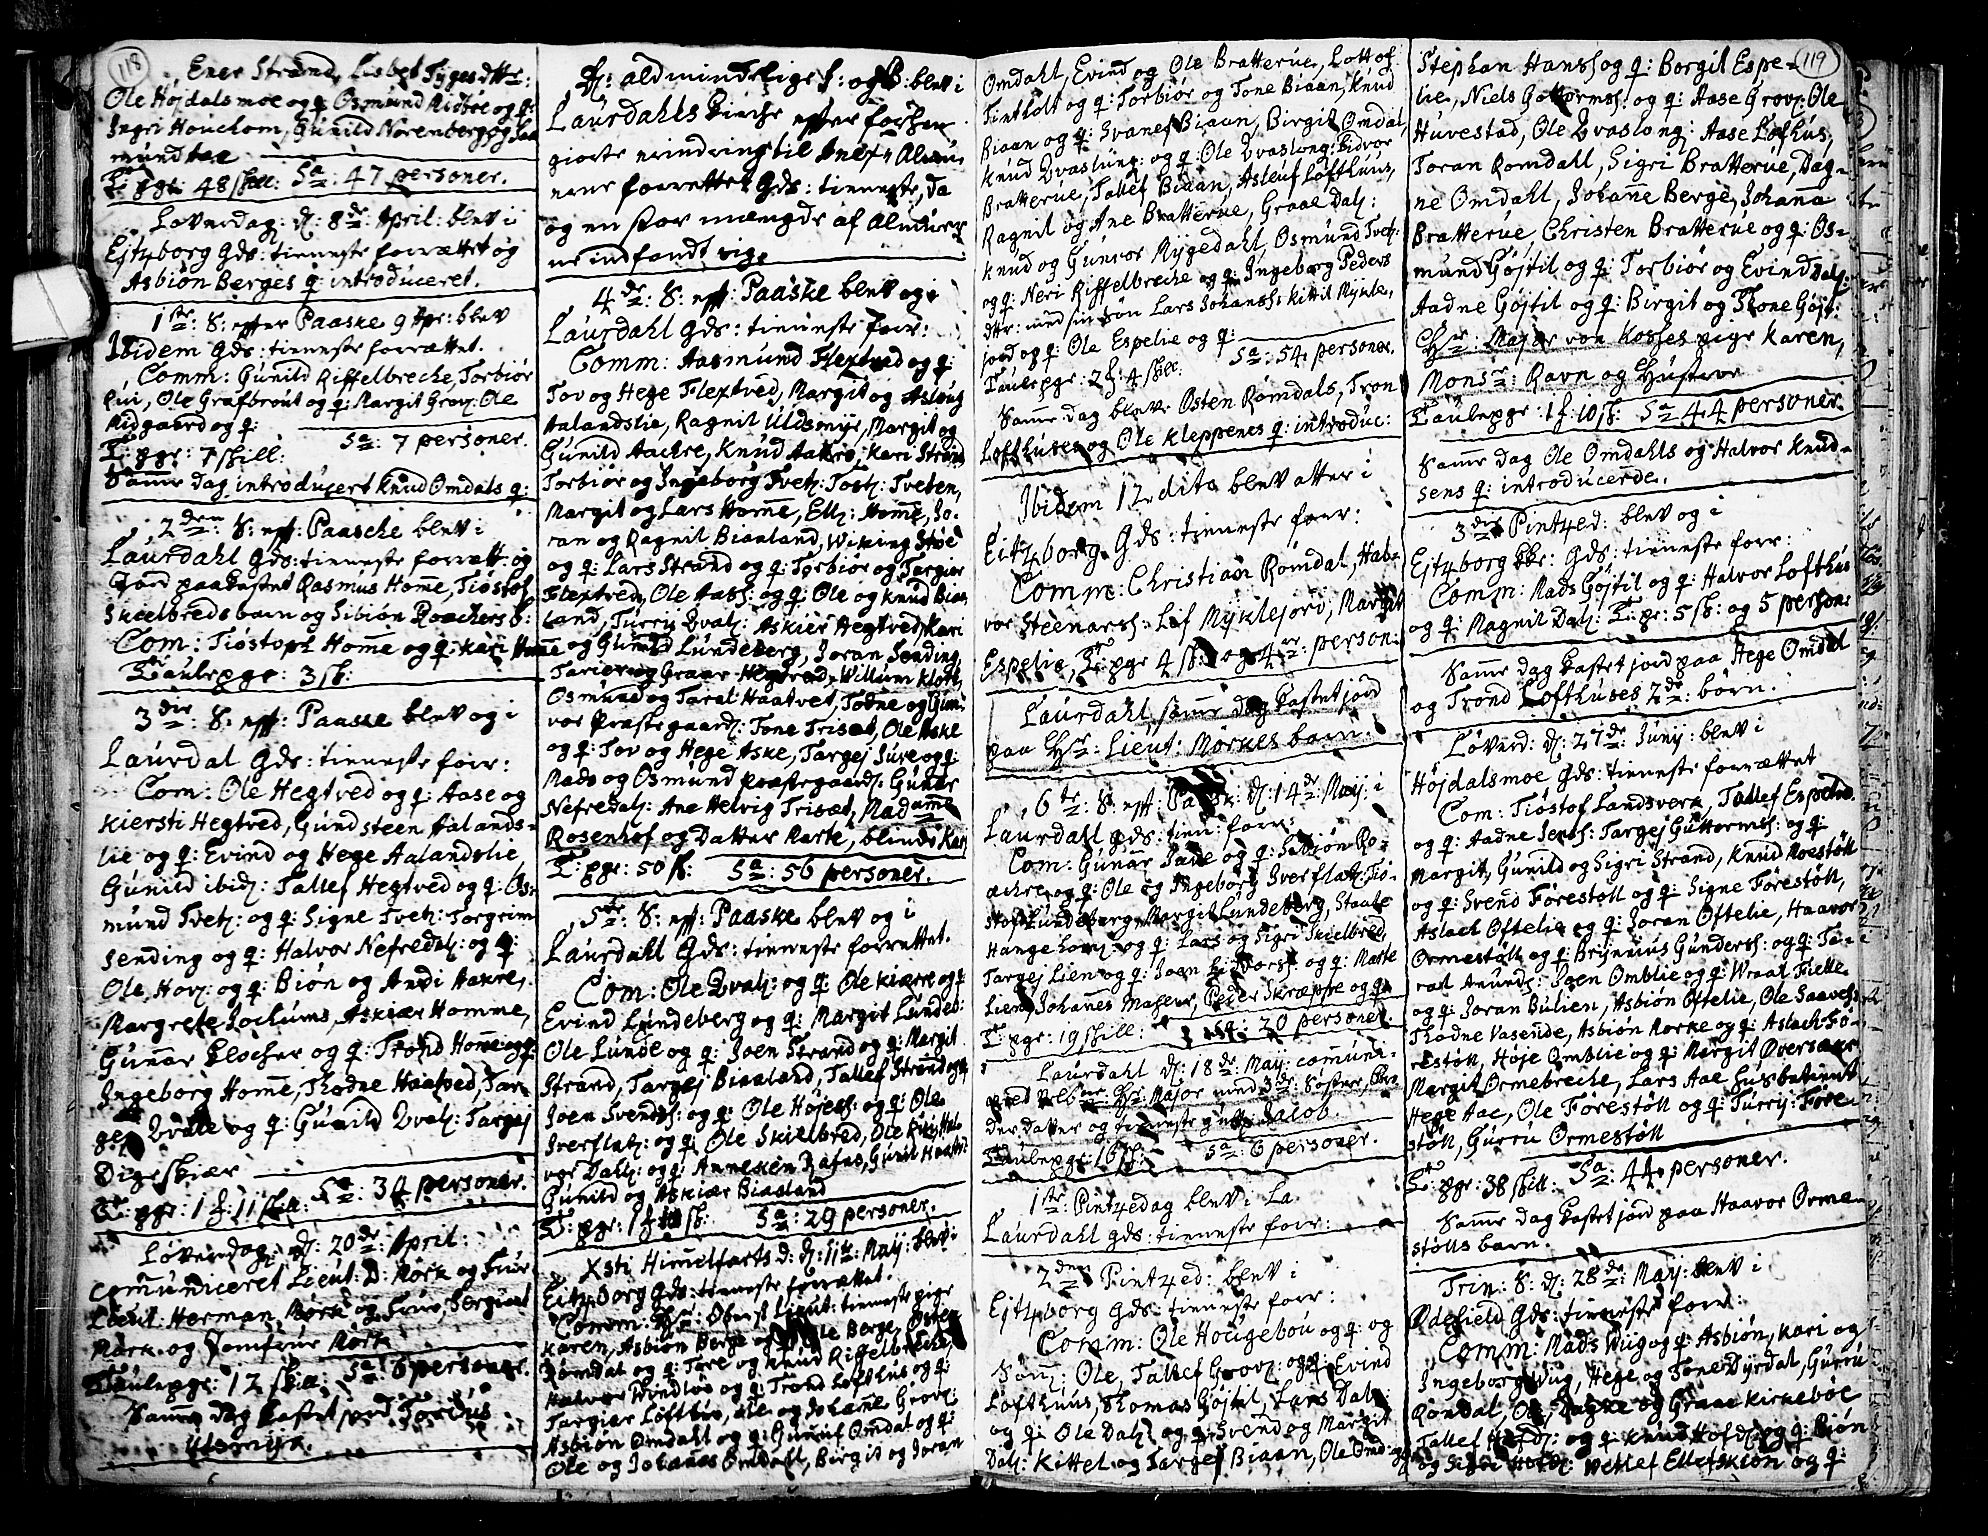 118
Ener Strand, Lisbet Tyges dttr:
Ole Højdalsmoe og q: Osmund Midbøe og q:
Ingri Houchom, Gunild Norenberg og
mund
T: pge: 48 skill: Sa: 47 personer.
Løverdag: d: 8de April: blev i
Ejtzborg Gds: tienneste forrættet og
Asbiøn Berges q: introduceret.
1ste: S: efter Paaske blev
Ibidem Gds: tienneste forrættet.
Comm: Gunild Riffelbreche, Torbiør
Rui, Ole Grafbrout og q: Margit Grov: Ole
Midgaard og q:
T: pge: 7 skill: Sa: 7 personer.
Samme dag introducert Knud Omdals q:
2den: S: eff: Paasche blev i
Laurdahl Gds: tienneste forrætt: og
Jord paakastet Rasmus Home, Tiøstof
Skeelbreds barn og Sibiøn Roachers b:
Com: Tiøstoph Home og q: Kari Home
Taulepge: 3 sk:
3die: S: eff: Paasse blev og i
Laurdal Gds: tienneste forr:
Com: Ole Hegtved og q: Aase og
Kiersti Hegtved, Gundsteen Aalands-
lie og q: Evind og Hege Aalandslie,
Gunild ibid: Tallef Hegtved og q: Os-
mund Tvet: og q: Signe Tvet: Torgrim
Sending og q: Halvor Nefredal: og q:
Ole, Hov: og q: Biøn og Andi Aakre,
Margrete Jochums, Askiær Homme,
Gunar Klocher og q: Trond Home og q:
Ingeborg Home, Thodne Haatved, Tar-
gej Qvale og q: Gunild Qval: Targej
Digeskiær
T: pge: 1 f: 11 skill: Sa: 34 personer.
Løverdag: d: 20de: April:
communiceret Lieut: D: Mørk og Frue,
Lieut: Herman Mørk og Frue, Sergiant
Mørk og Jomfrue Mørk
Taulepge: 12 skill: Sa: 6 personer.
Samme dag kastet jord
Utsmyr.
D: aldmindelige f: og B: blev i
Laurdahls Kirche efter forhen
giorte erindring til Anex Almu-
erne forrettet Gds: tienneste, da
og en stor mængde af Almuen
indfandt sig.
4de: S: eff: Paaske blev og i
Laurdahl Gds: tienneste forr:
Comm: Aasmund Flextved og q:
Tov og Hege Flextved, Margit og Asloug
Aalandslie, Ragnil Uldsmyr, Margit og
Gunild Aackre, Knud Aakre, Kari Strand
Torbiør og Ingeborg Tvet: Tost: Tveten,
Margit og Lars Home, Ell: Home, Jo-
ran og Ragnil Biaaland, Wiking Stoe
og q: Lars Strand og q: Torbiør og Targier
Flextven, Ole Aas: og q: Ole og Knud Biaa-
land, Turry Qval: Askier Hegtved, Kari
og Gunild Lundeberg, Joran Sending,
og Graae Hegtved, Willum Klott,
Osmund og Tarat Haatvet, Todne og Gun-
vor Præstegaard: Tone Trisæt, Ole Aske
og q: Tov og Hege Aske, Targej Juve og q:
Mads og Osmund Præstegaard: Gunar
Nefredal: Ane Helvig Trisæt, Madame
Rosenhof og Datter Marte, blinde Kari
T: pge: 50 sk: Sa: 56 personer.
5te: S: eff: Paaske blev og i
Laurdahl Gds: tienneste forrettet.
Com: Ole Qval: og q: Ole Kiære og q:
Evind Lundeberg og q: Margit Lundeb:
Ole Lunde og q: Joen Strand og q: Margit
Strand, Targej Biaaland, Tallef Strand og q:
Joen Svends: og q: Ole Højes: og q: Ole
Sverflat: og q: Ole Skielbred, Ole Hal-
vor Dal: og q: Anneken Rafns, Gunil Haatv:
Gunild og Askiær Biaaland
T: pge: 1 f: sk: Sa: 29 personer.
Xsti Himmelfarts d: d: 11te: Maij: blev i
Ejtzborg Gds: tienneste forrættet.
Comm: Hr: Oberst Lieut: tienneste pige
Karen, Asbiøn Berge og Ole Berge, Østen
Romdal og q: Tore og Knud Riffelbreche,
Halvor og q: Trond Lofthus og q:
Targier Lofthus, Ole og Johane Grov:
Asbiøn Omdahl og q: Gunuf Omdal og q:
Ole og Johanes Omdahl, Birgit og Joran
Omdahl, Evind og Ole Bratterue, Lott of
Tintholt og q: Torbiør og Tone Biaan, Knud
Biaan og q: Svanef Biaan, Birgit Omdal,
Knud Qvaslung: og q: Ole Qvaslong: Lidvor
Bratterue, Tallef Biaan, Asleuf Lofthuus,
Ragnil og Ane Bratterue, Graae Dal:
Knud og Gunvor Rygedahl, Osmund Tvet:
og q: Neri Riffelbreche og q: Ingeborg Peders
dtr: med sin søn Lars Johans: Kittil Mykle-
jord og q: Ole Espelie og q:
Taulepge: 2 f: 4 skill: Sa: 54 personer.
Samme dag blev: Østen Romdals, Tron
Lofthuses og Ole Kleppenes q: introduc:
Ibidem 12 dito blev atter i
Eitzborg: Gds: tienneste forr:
Comm: Christian Romdal, Hal-
vor Steenars: Lef Myklejord, Margit
Espelie, T: pge 4 sk: og 4re person:
Laurdahl samme dag kastet jord
paa Hr: Lieut: Mørkes barn.
6te: S: eff: Paask: d: 14de: Maij: i
Laurdahl gds: tien: forr:
Com: Gunar Jave og q: Sebiøn Ro-
achre og q: Ole og Ingeborg Sverflat: Tiø-
stof Lundeberg, Margit Lundeberg, Staale
Hange og q: Lars og Sigri Skielbred,
Targej Lien og q: Joen og q: Marte
Lien, Johanes Maseur, Peder Skræppe og q:
T: pge: 19 skill: Sa: 20 personer.
Laurdahl d: 18de: Maij: communi-
ceret Velbne Hr: Major med 3de: Søstre,
der datter og tienneste gutt: Jacob.
Taulepge: 16 sk: Sa: 6 personer.
1ste: Pintzedag blev i La
Laurdahl gds: tienneste forr:
2den: Pintzed: blev i
Ejtzborg Gds: tienneste forr:
Comm: Ole Hougebou og q: og
Søn: Ole, Tallef Grov: og q: Evind
Lofthuus, Thomas Gøjtil, Lars Dal:
og q: Ole Dal: og q: Svend og Margit
Dal: Kittel og Targej Biaan, Ole Omd: og q:
119
Stephan Hans: og q: Borgil Espe-
lie, Niels Gottorms: og q: Aase Grov: Ole
Huvestad, Ole Qvaslong: Aase Lofhus,
Toran Romdall, Sigri Bratterue, Dag-
ne Omdahl, Johane Berge, Johana
Bratterue Christen Bratterue og q: Os-
mund Gøjtil og q: Torbiør og Evind Dal:
Aadne Gøjtil og q: Birgit og Thone Gøjt:
Hr: Major von Kosses pige Karen,
Monsr: Ravn og Hustrue
Taulepge: 1 f 10 sk: Sa 44 personer.
Samme dag Ole Omdahls og Halvor Knud-
sens q: introducerede.
3die Pintzed: blev og i
Ejtzborg Gds: tienneste forr:
Comm: Mads Gøjtil og q: Halvor Lofthus
og q: Magnil Dal: T: pge: 5 sk: og 5 person:
Samme dag kastet jord paa Hege Omdal
og Trond Lofthuses 2de: børn.
Løverd: d: 27de: Junij: blev i
Højdalsmoe Gds: tienneste forrættet
Com: Tiøstof Landsverk, Tallef
og q: Aadne Jens: Targej Guttorms: og q:
Margit, Gunild og Sigri Strand, Knud Moestøll
og q: Svend Førestøll og q: Signe Førestøll,
Aslach Oftelie og q: Joran Oftelie, Haavor
Ormestøll og q: Brynnius Gunders: og q: Ta-
rat Anund: Joen Omblie og q: Wraal
og q: Joran Bulien, Asbiøn Oftelie, Ole
Thodne Vasende, Asbiøn Morke og q: Aslach Fø-
restøll, Høje Omblie og q: Margit
Margit Ormebreche, Lars Aae,
Hege Aae, Ole Førestøll og q: Turry: Føre-
støll, Gurru Ormestøll
T: pge: 38 skill: Sa: 44 personer.
Samme dag kastet jord paa Haavor Orme-
støls barn.
Trin: S: d: 28de: Maij: blev i
Ødefield Gds: tienneste forr:
Comm: Mads Wiig og q: Asbiøn, Kari og
Ingeborg Wiig, Hege og Tone Dyrdal, Gurru
Rondal, Dagne og Graae Kirkebøe
Tallef Hofd: og q: Knud Hofd: og q: Biøn
og Sigri Hofd: Vetlef Ellefskiøn og q: